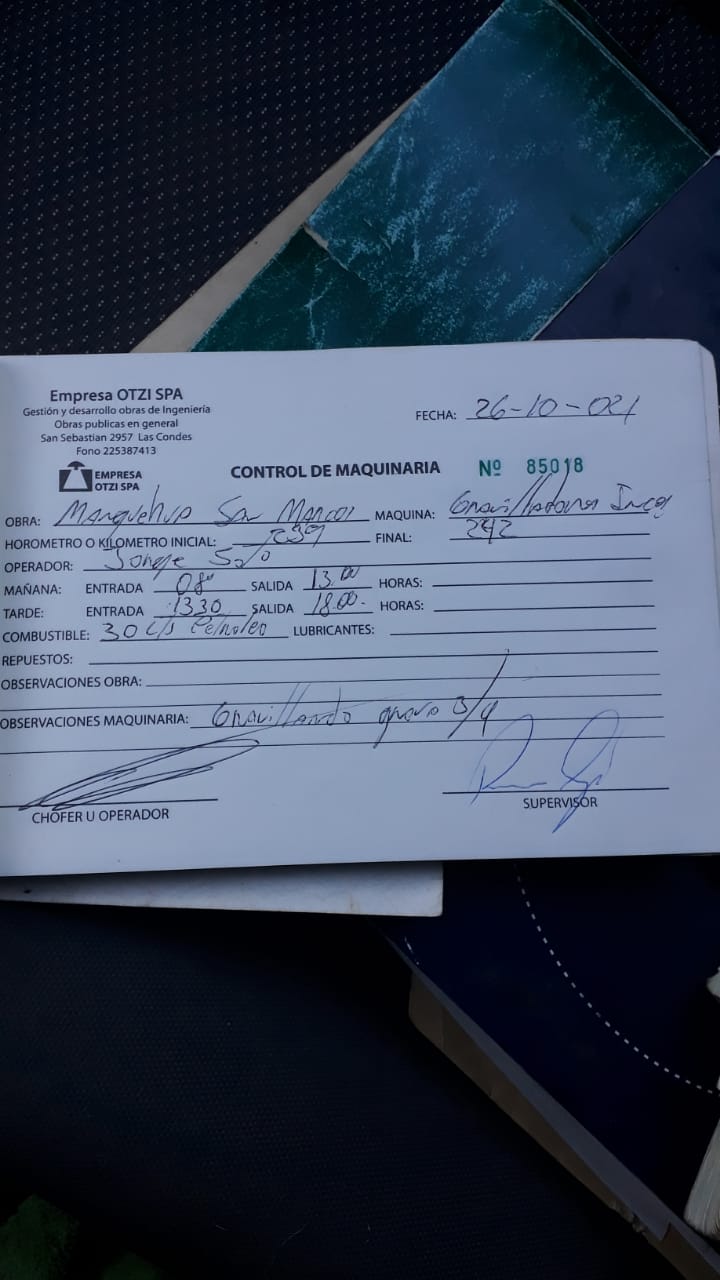 Empresa OTZI SPA
Gestión y desarrollo obras de Ingenieria
Obras publicas en general
San Sebastian 2957 Las Condes
Fono 225387413
EMPRESA
OTZI SPA
FECHA: 26-10-021
CONTROL DE MAQUINARIA Nº 85018
OBRA: Manquehue San Marcos MAQUINA:
HOROMETRO O KILOMETRO INICIAL: 239 FINAL: 242
OPERADOR: Jorge Soto
MAÑANA: ENTRADA 08 SALIDA 13.00 HORAS:
TARDE: ENTRADA 13.30 SALIDA 18.00. HORAS:
COMBUSTIBLE: 30 Petroleo LUBRICANTES:
REPUESTOS:
OBSERVACIONES OBRA:
OBSERVACIONES MAQUINARIA: Gravillando grava 3/4
CHOFER U OPERADOR
SUPERVISOR